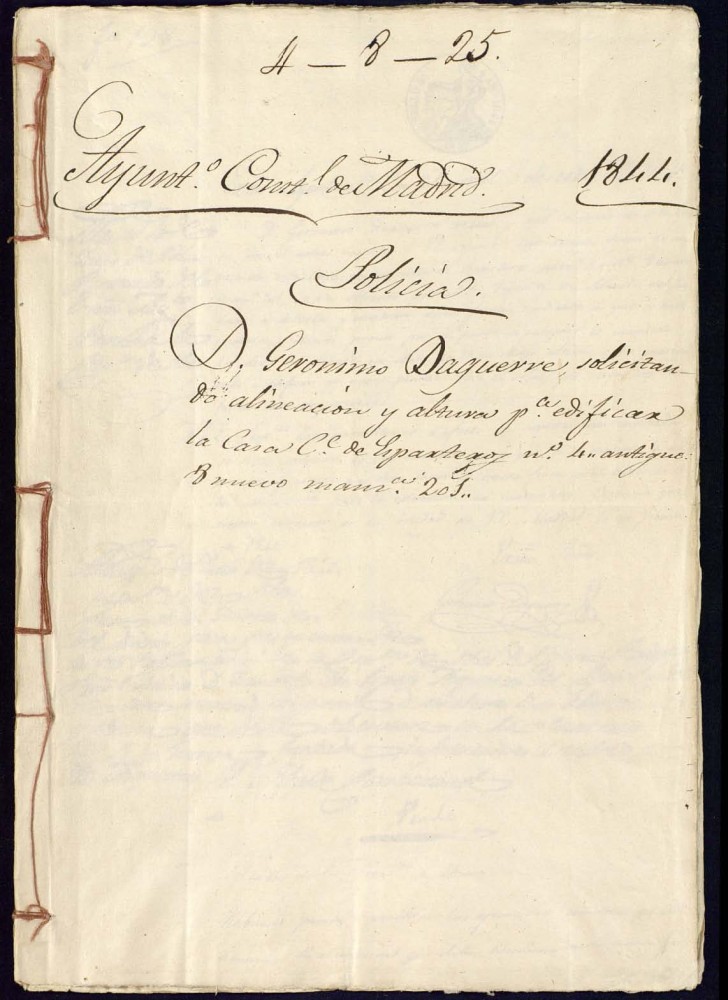 4 – 8 – 25.
Ayunt.º Const.l de Madrid. 1844.
Policia.
D. Geronimo Daguerre, solicitan-
do alineacion y altura p.a edificar
la Casa C.e de Esparteros n.º 4.. antiguo.
8 nuevo manz.a 201..